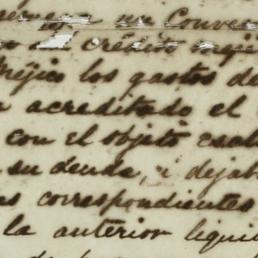 un Conve
crédito
Méjico los gastos de
acreditado el
con el objeto escl
su deuda, i dejab
as correspondientes
la anterior liqui